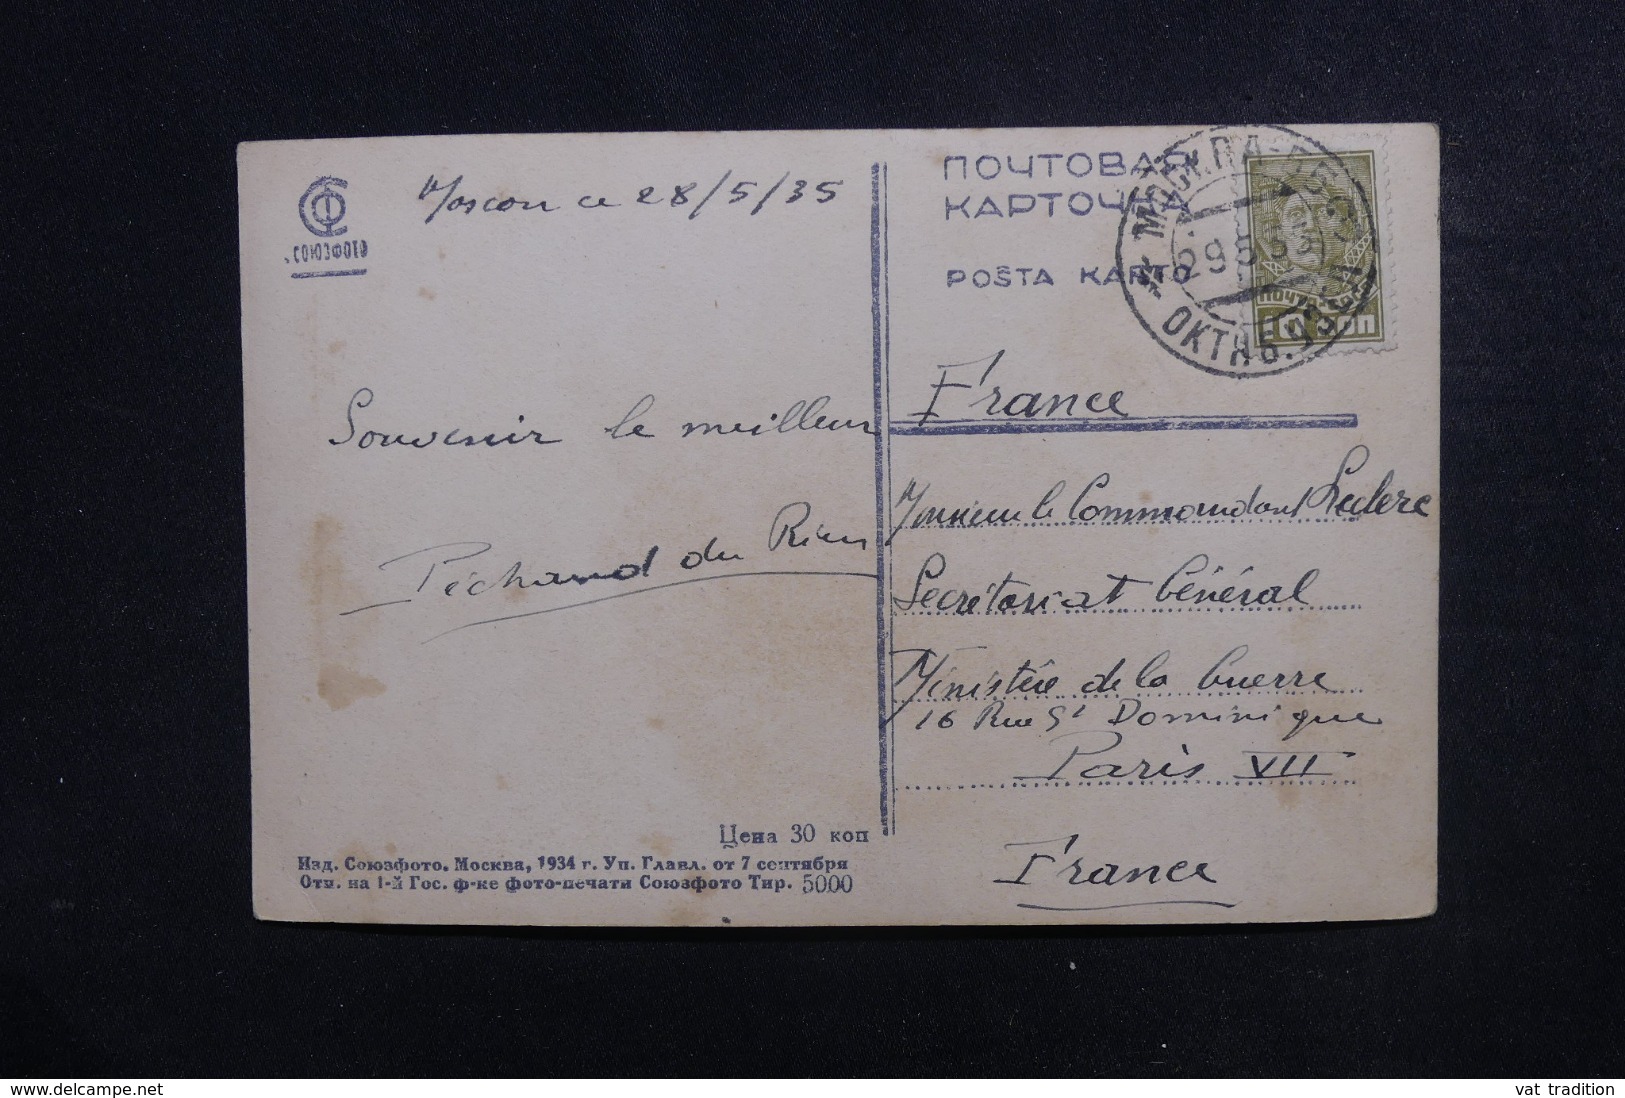 Moscou ce 28/5/35
СОЮЗФОТО
ПОЧТОВАЯ
КАРТОЧКА
POŜTA KARTO
ОКТЯБ.
29 5
ПОЧТА
КОП
Souvenir le meilleur
Péchand du Rieu
Цена 30 коп
Изд. Союзфото. Москва, 1934 г. Уп. Главл. от 7 сентября
Отп. на 1-й Гос. ф-ке фото-печати Союзфото Тир. 5000
France
Monsieur le Commandant Leclerc
Secrétariat Général
Ministère de la Guerre
16 Rue St Dominique
Paris VII
France
www.delcampe.net
vat_tradition